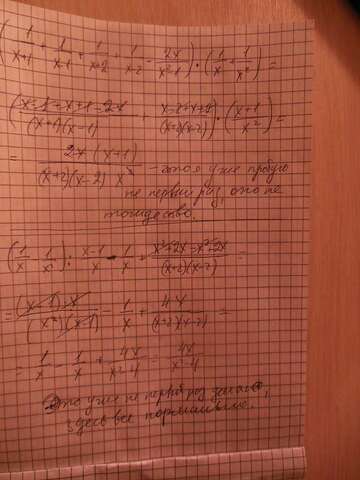 (1/(x+1) + 1/(x-1) + 1/(x+2) + 1/(x-2) - 2x/(x²-1)) · (1/x + 1/x²) =
((x-1+x+1-2x)/((x+1)(x-1)) + (x-2+x+2)/((x+2)(x-2))) · ((x+1)/x²) =
= 2x(x+1)/((x+2)(x-2) x - это я уже пробую
не первый раз, это не
тождество.
(1/x - 1/x²) : (x-1)/x - 1/x + (x²+2x-x²+2x)/((x+2)(x-2)) =
= (x-1)·x/((x²)(x-1)) - 1/x + 4x/((x+2)(x-2)) =
= 1/x - 1/x + 4x/(x²-4) = 4x/(x²-4)
Это уже не первый раз
здесь все нормально.